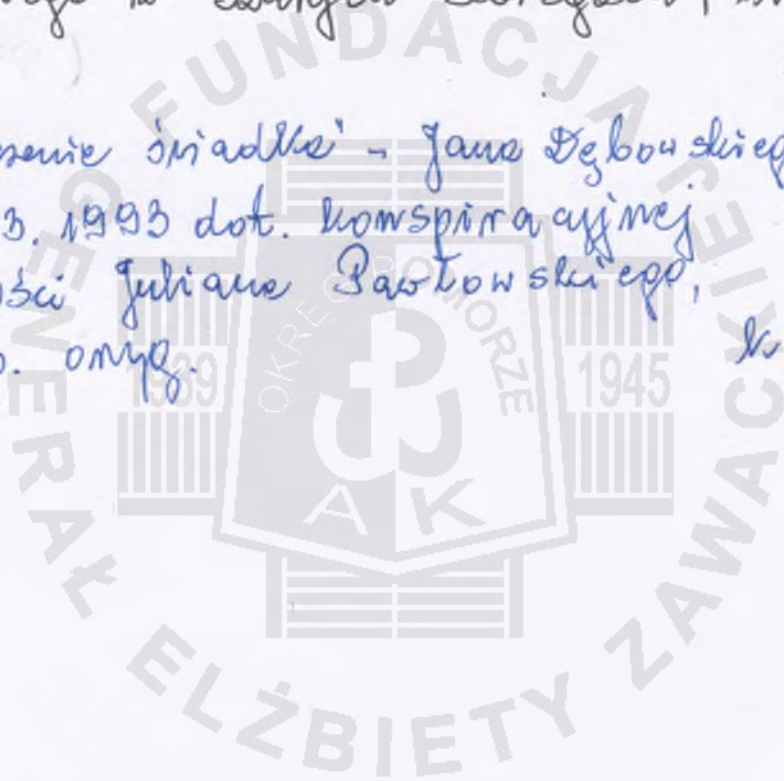 senie świadka - Jana Dębowskieg
3. 1993 dot. konspiracyjnej
ści Juliana Pawłowskiego,
. oryg. k
FUNDACJA GENERAŁ ELŻBIETY ZAWACKIEJ
OKRĘG POMORZE
1939 1945
AK